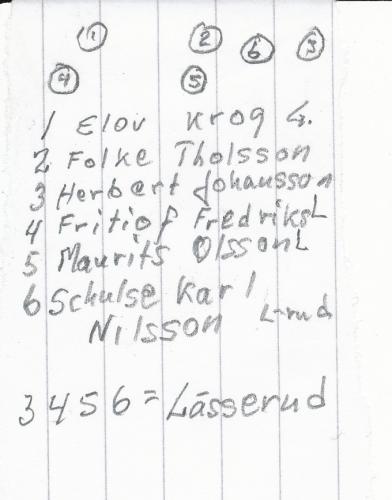 1 2 6 3
4 5
1 Elov Krog L.
2 Folke Tholsson
3 Herbert Johansson
4 Fritiof Fredriks L
5 Maurits Olsson L
6 Schulse Karl
Nilsson L-rud
3 4 5 6 = Lässerud